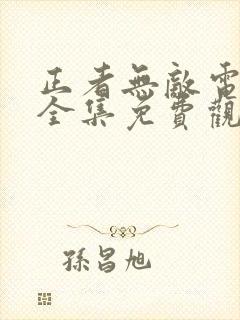 正者無敵電
全集免費觀
孫昌旭